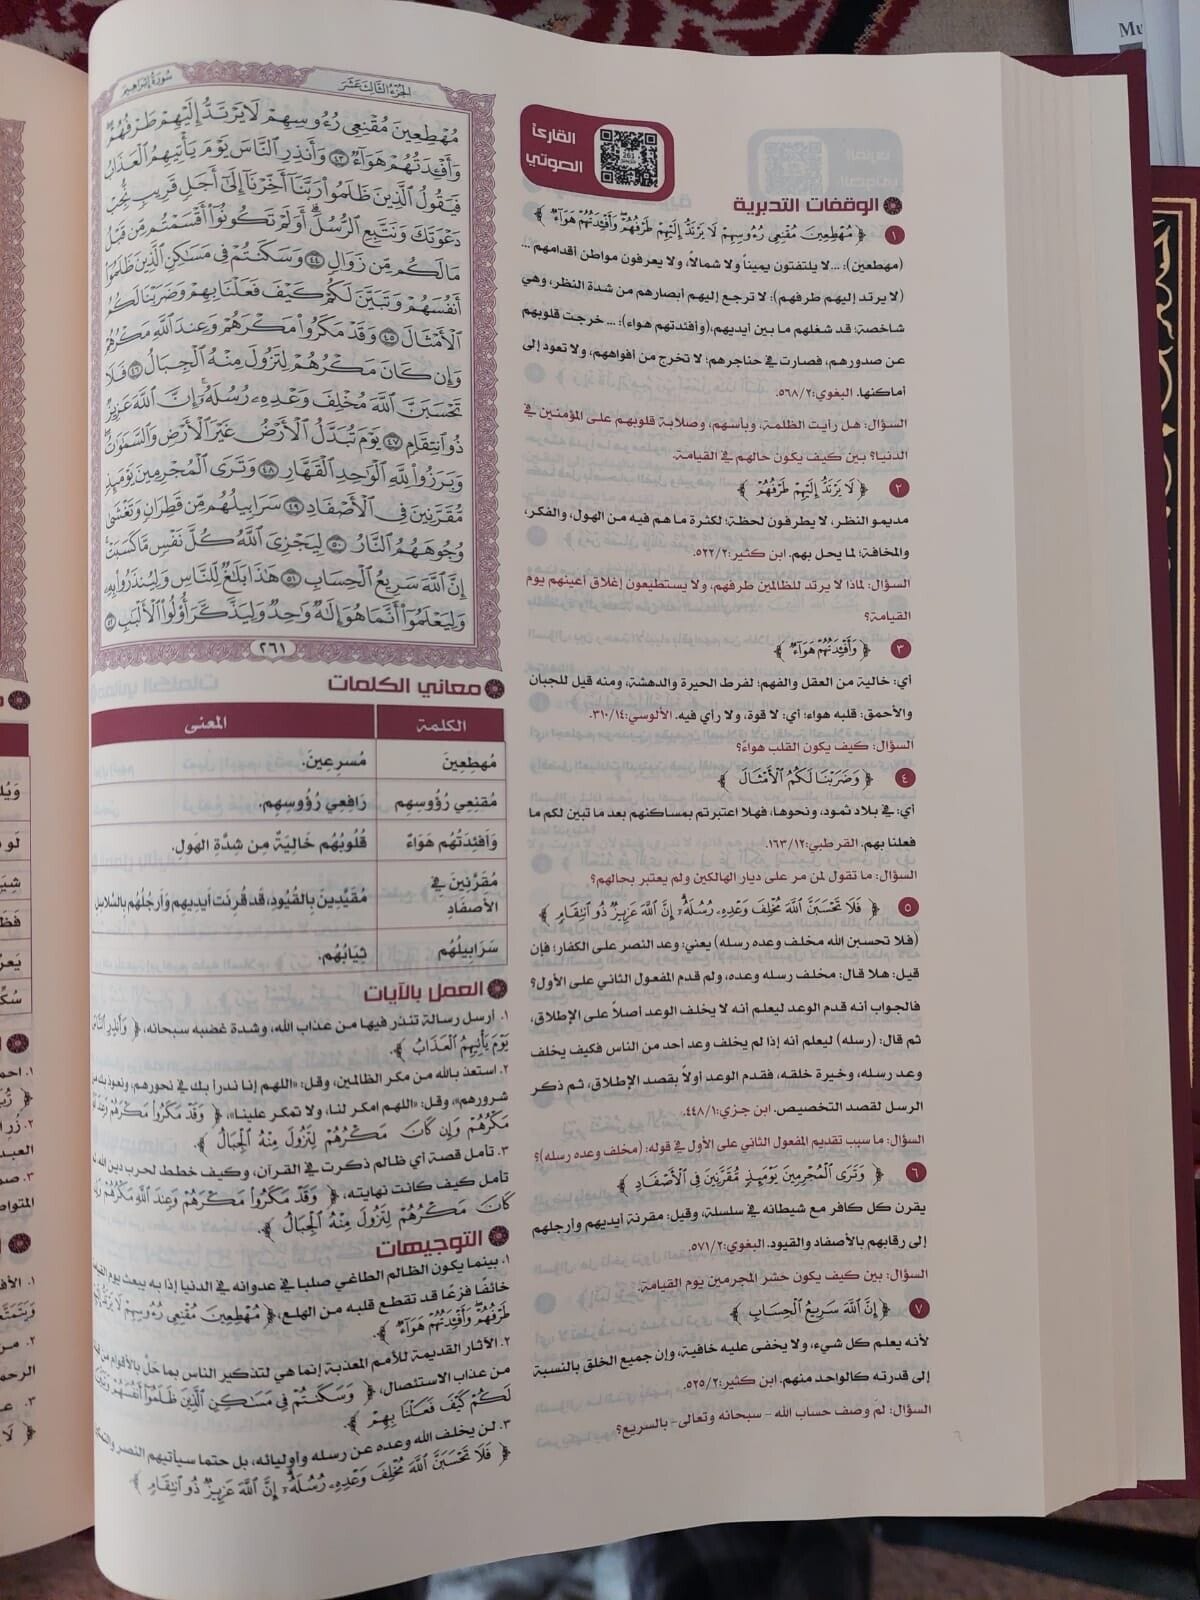 سُورَةُ إِبْرَاهِيم
الجُزْءُ الثَّالِثَ عَشَرَ
مُهْطِعِينَ مُقْنِعِي رُءُوسِهِمْ لَا يَرْتَدُّ إِلَيْهِمْ طَرْفُهُمْ
وَأَفْـِٔدَتُهُمْ هَوَآءٌ ٤٣ وَأَنذِرِ النَّاسَ يَوْمَ يَأْتِيهِمُ الْعَذَابُ
فَيَقُولُ الَّذِينَ ظَلَمُوا۟ رَبَّنَآ أَخِّرْنَآ إِلَىٰٓ أَجَلٍ قَرِيبٍ نُّجِبْ
دَعْوَتَكَ وَنَتَّبِعِ الرُّسُلَ أَوَلَمْ تَكُونُوٓا۟ أَقْسَمْتُم مِّن قَبْلُ
مَا لَكُم مِّن زَوَالٍ ٤٤ وَسَكَنتُمْ فِي مَسَٰكِنِ الَّذِينَ ظَلَمُوٓا۟
أَنفُسَهُمْ وَتَبَيَّنَ لَكُمْ كَيْفَ فَعَلْنَا بِهِمْ وَضَرَبْنَا لَكُمُ
الْأَمْثَالَ ٤٥ وَقَدْ مَكَرُوا۟ مَكْرَهُمْ وَعِندَ اللَّهِ مَكْرُهُمْ
وَإِن كَانَ مَكْرُهُمْ لِتَزُولَ مِنْهُ الْجِبَالُ ٤٦ فَلَا
تَحْسَبَنَّ اللَّهَ مُخْلِفَ وَعْدِهِۦ رُسُلَهُۥٓ إِنَّ اللَّهَ عَزِيزٌ
ذُو انتِقَامٍ ٤٧ يَوْمَ تُبَدَّلُ الْأَرْضُ غَيْرَ الْأَرْضِ وَالسَّمَٰوَٰتُ
وَبَرَزُوا۟ لِلَّهِ الْوَٰحِدِ الْقَهَّارِ ٤٨ وَتَرَى الْمُجْرِمِينَ يَوْمَئِذٍ
مُّقَرَّنِينَ فِي الْأَصْفَادِ ٤٩ سَرَابِيلُهُم مِّن قَطِرَانٍ وَتَغْشَىٰ
وُجُوهَهُمُ النَّارُ ٥٠ لِيَجْزِيَ اللَّهُ كُلَّ نَفْسٍ مَّا كَسَبَتْ
إِنَّ اللَّهَ سَرِيعُ الْحِسَابِ ٥١ هَٰذَا بَلَٰغٌ لِّلنَّاسِ وَلِيُنذَرُوا۟ بِهِۦ
وَلِيَعْلَمُوٓا۟ أَنَّمَا هُوَ إِلَٰهٌ وَٰحِدٌ وَلِيَذَّكَّرَ أُو۟لُوا۟ الْأَلْبَٰبِ ٥٢
٢٦١
القارئ
الصوتي
261
الوقفات التدبرية
١ ﴿ مُهْطِعِينَ مُقْنِعِي رُءُوسِهِمْ لَا يَرْتَدُّ إِلَيْهِمْ طَرْفُهُمْ وَأَفْـِٔدَتُهُمْ هَوَآءٌ ﴾
(مهطعين): ...لا يلتفتون يميناً ولا شمالاً، ولا يعرفون مواطن أقدامهم ...
(لا يرتد إليهم طرفهم): لا ترجع إليهم أبصارهم من شدة النظر، وهي
شاخصة؛ قد شغلهم ما بين أيديهم،(وأفئدتهم هواء): ... خرجت قلوبهم
عن صدورهم، فصارت في حناجرهم؛ لا تخرج من أفواههم، ولا تعود إلى
أماكنها. البغوي:٥٦٨/٢.
السؤال: هل رأيت الظلمة، وبأسهم، وصلابة قلوبهم على المؤمنين في
الدنيا؟ بين كيف يكون حالهم في القيامة.
٢ ﴿ لَا يَرْتَدُّ إِلَيْهِمْ طَرْفُهُمْ ﴾
مديمو النظر، لا يطرفون لحظة؛ لكثرة ما هم فيه من الهول، والفكر،
والمخافة؛ لما يحل بهم. ابن كثير:٥٢٢/٢.
السؤال: لماذا لا يرتد للظالمين طرفهم، ولا يستطيعون إغلاق أعينهم يوم
القيامة؟
٣ ﴿ وَأَفْـِٔدَتُهُمْ هَوَآءٌ ﴾
أي: خالية من العقل والفهم؛ لفرط الحيرة والدهشة، ومنه قيل للجبان
والأحمق: قلبه هواء؛ أي: لا قوة، ولا رأي فيه. الألوسي:٣١٠/١٤.
السؤال: كيف يكون القلب هواءً؟
٤ ﴿ وَضَرَبْنَا لَكُمُ الْأَمْثَالَ ﴾
أي: في بلاد ثمود، ونحوها، فهلا اعتبرتم بمساكنهم بعد ما تبين لكم ما
فعلنا بهم. القرطبي:١٦٣/١٢.
السؤال: ما تقول لمن مر على ديار الهالكين ولم يعتبر بحالهم؟
٥ ﴿ فَلَا تَحْسَبَنَّ اللَّهَ مُخْلِفَ وَعْدِهِۦ رُسُلَهُۥٓ إِنَّ اللَّهَ عَزِيزٌ ذُو انتِقَامٍ ﴾
(فلا تحسبن الله مخلف وعده رسله) يعني: وعد النصر على الكفار؛ فإن
قيل: هلا قال: مخلف رسله وعده، ولم قدم المفعول الثاني على الأول؟
فالجواب أنه قدم الوعد ليعلم أنه لا يخلف الوعد أصلاً على الإطلاق،
ثم قال: (رسله) ليعلم أنه إذا لم يخلف وعد أحد من الناس فكيف يخلف
وعد رسله، وخيرة خلقه، فقدم الوعد أولاً بقصد الإطلاق، ثم ذكر
الرسل لقصد التخصيص. ابن جزي:٤٤٨/١.
السؤال: ما سبب تقديم المفعول الثاني على الأول في قوله: (مخلف وعده رسله)؟
٦ ﴿ وَتَرَى الْمُجْرِمِينَ يَوْمَئِذٍ مُّقَرَّنِينَ فِي الْأَصْفَادِ ﴾
يقرن كل كافر مع شيطانه في سلسلة، وقيل: مقرنة أيديهم وأرجلهم
إلى رقابهم بالأصفاد والقيود. البغوي:٥٧١/٢.
السؤال: بين كيف يكون حشر المجرمين يوم القيامة.
٧ ﴿ إِنَّ اللَّهَ سَرِيعُ الْحِسَابِ ﴾
لأنه يعلم كل شيء، ولا يخفى عليه خافية، وإن جميع الخلق بالنسبة
إلى قدرته كالواحد منهم. ابن كثير:٥٢٥/٢.
السؤال: لمَ وصف حساب الله - سبحانه وتعالى- بالسريع؟
معاني الكلمات
الكلمة المعنى
مُهطِعِينَ مُسرِعِينَ.
مُقنِعِي رُؤُوسِهِم رَافِعِي رُؤُوسِهِم.
وَأَفئِدَتُهُم هَوَاءٌ قُلُوبُهُم خَالِيَةٌ مِن شِدَّةِ الهَولِ.
مُقَرَّنِينَ فِي الأَصفَادِ مُقَيَّدِينَ بِالقُيُودِ، قَد قُرِنَت أَيدِيهِم وَأَرجُلُهُم بِالسَّلَاسِلِ
سَرَابِيلُهُم ثِيَابُهُم.
العمل بالآيات
١. أرسل رسالة تنذر فيها من عذاب الله، وشدة غضبه سبحانه، ﴿ وَأَنذِرِ النَّاسَ
يَوْمَ يَأْتِيهِمُ الْعَذَابُ ﴾.
٢. استعذ بالله من مكر الظالمين، وقل: «اللهم إنا ندرأ بك في نحورهم، ونعوذ بك من
شرورهم»، وقل: «اللهم امكر لنا، ولا تمكر علينا»، ﴿ وَقَدْ مَكَرُوا۟ مَكْرَهُمْ وَعِندَ اللَّهِ
مَكْرُهُمْ وَإِن كَانَ مَكْرُهُمْ لِتَزُولَ مِنْهُ الْجِبَالُ ﴾.
٣. تأمل قصة أي ظالم ذكرت في القرآن، وكيف خطط لحرب دين الله
تأمل كيف كانت نهايته، ﴿ وَقَدْ مَكَرُوا۟ مَكْرَهُمْ وَعِندَ اللَّهِ مَكْرُهُمْ وَإِن
كَانَ مَكْرُهُمْ لِتَزُولَ مِنْهُ الْجِبَالُ ﴾.
التوجيهات
١. بينما يكون الظالم الطاغي صلبا في عدوانه في الدنيا إذا به يبعث يوم القيامة
خائفًا فزعًا قد تقطع قلبه من الهلع، ﴿ مُهْطِعِينَ مُقْنِعِي رُءُوسِهِمْ لَا يَرْتَدُّ
طَرْفُهُمْ وَأَفْـِٔدَتُهُمْ هَوَآءٌ ﴾.
٢. الآثار القديمة للأمم المعذبة إنما هي لتذكير الناس بما حَلَّ بالأقوام من
من عذاب الاستئصال، ﴿ وَسَكَنتُمْ فِي مَسَٰكِنِ الَّذِينَ ظَلَمُوٓا۟ أَنفُسَهُمْ وَتَبَيَّنَ
لَكُمْ كَيْفَ فَعَلْنَا بِهِمْ ﴾.
٣. لن يخلف الله وعده عن رسله وأوليائه، بل حتما سيأتيهم النصر
﴿ فَلَا تَحْسَبَنَّ اللَّهَ مُخْلِفَ وَعْدِهِۦ رُسُلَهُۥٓ إِنَّ اللَّهَ عَزِيزٌ ذُو انتِقَامٍ ﴾